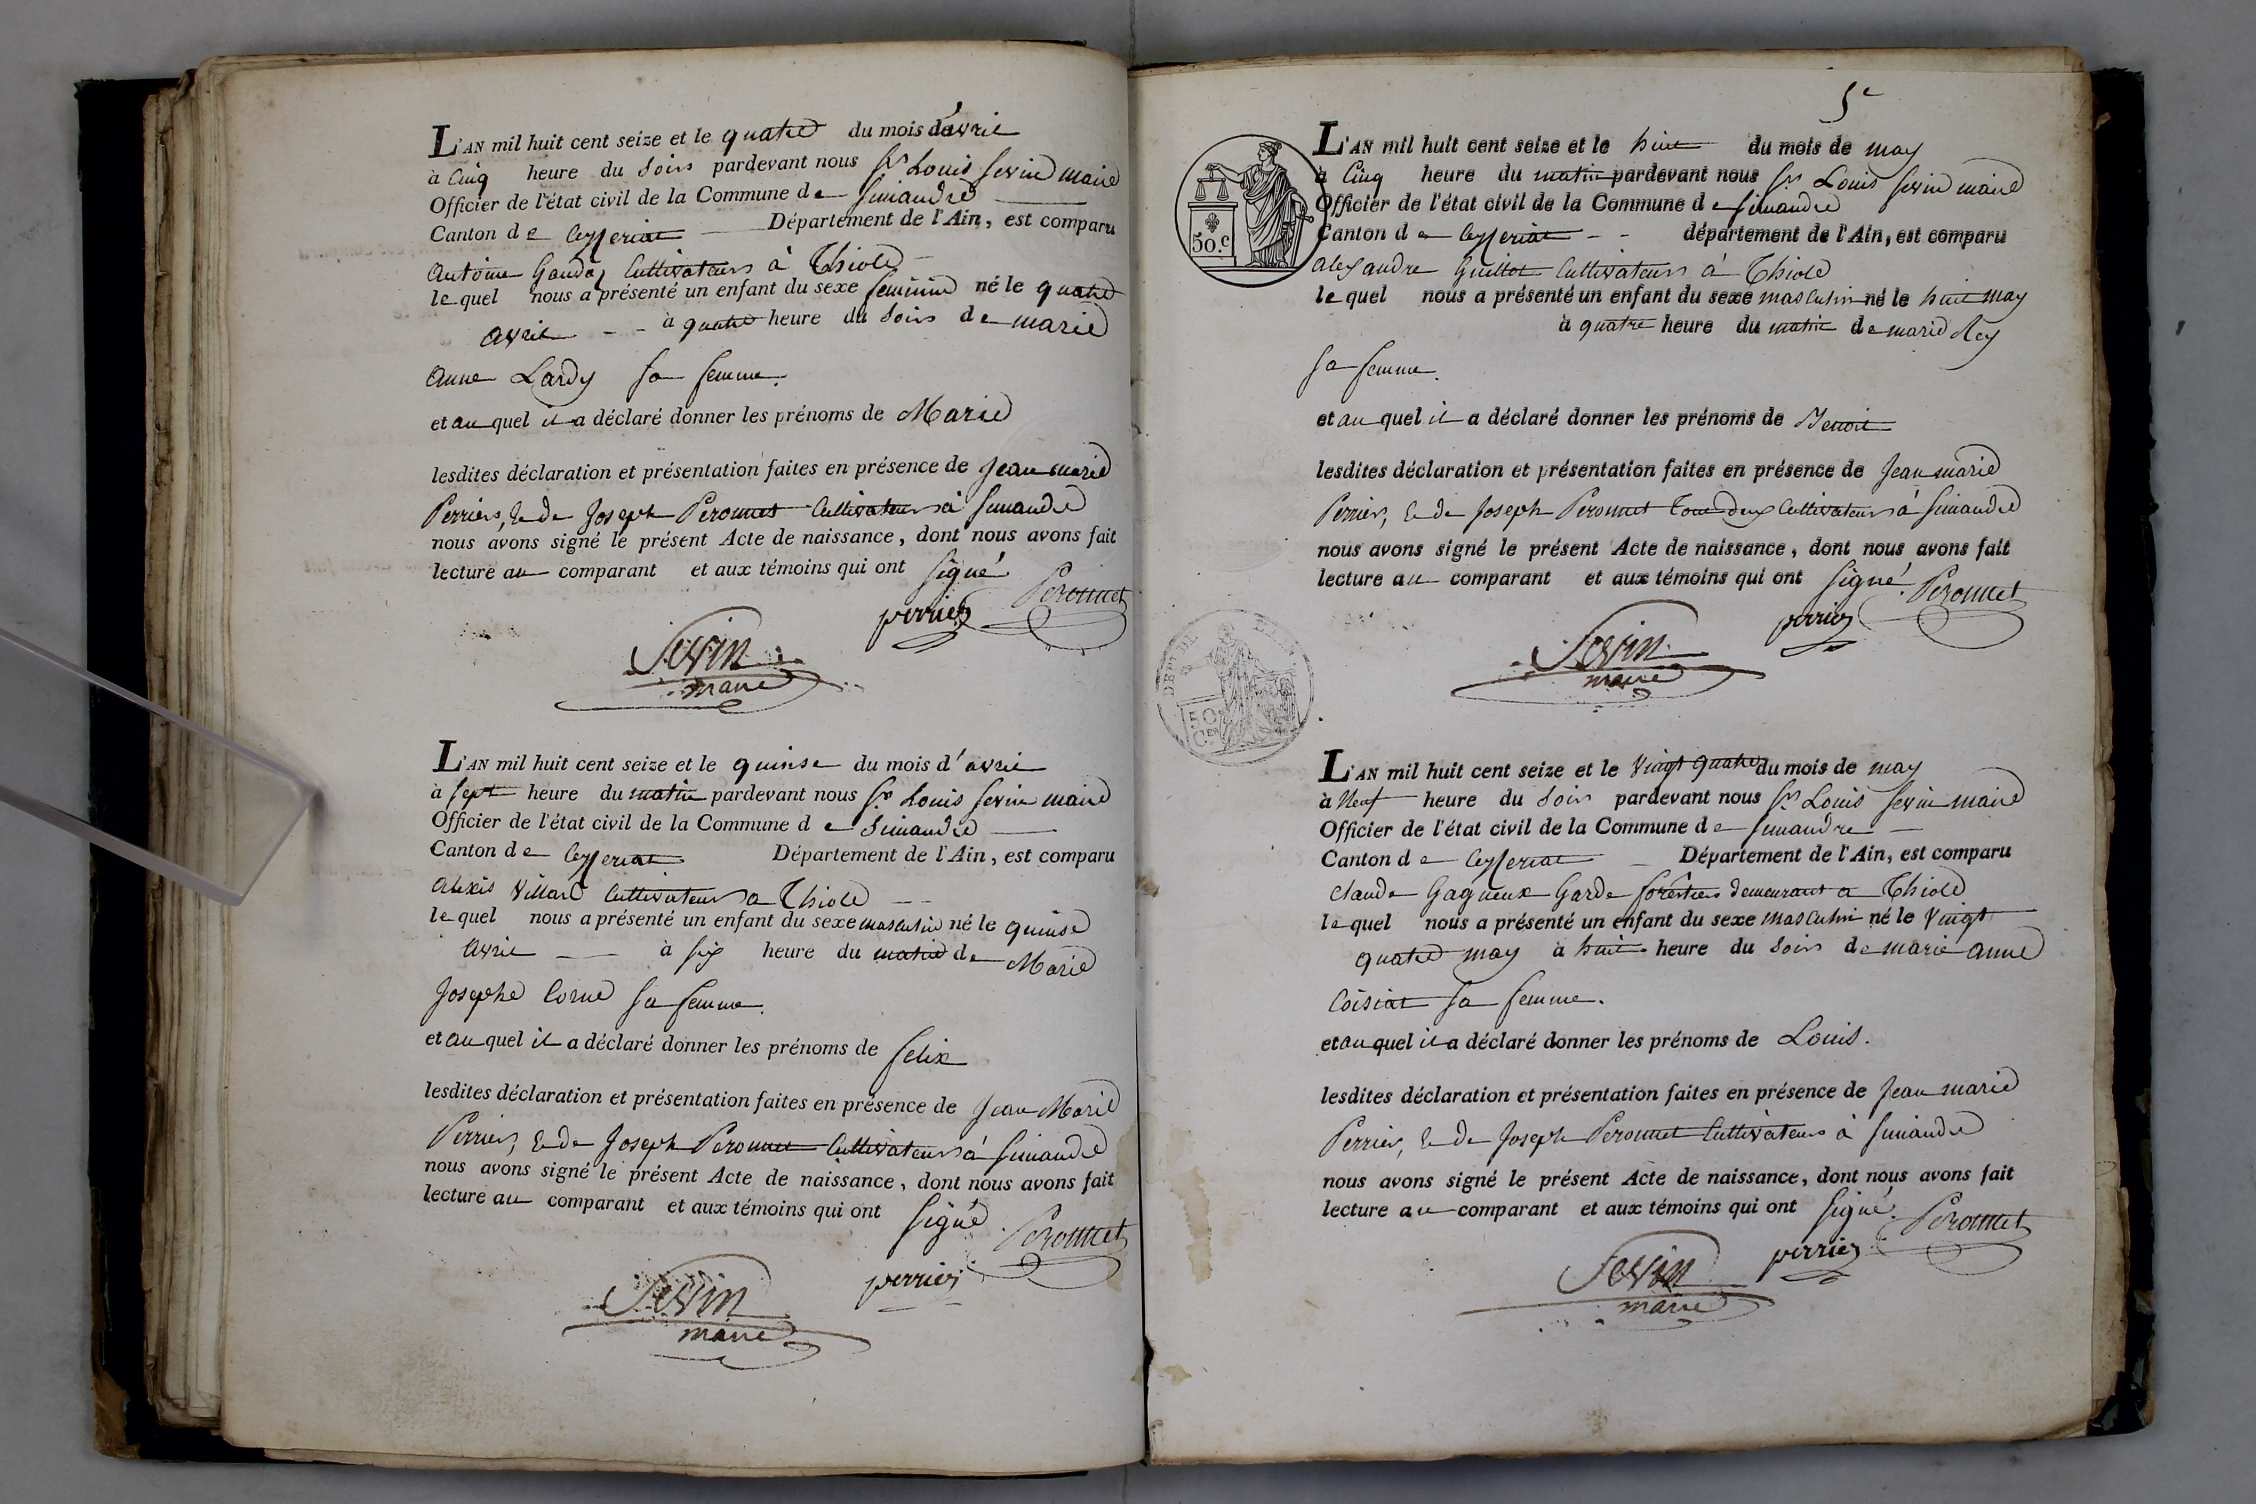 L'AN mil huit cent seize et le quatre du mois d'avril
à Cinq heure du Soir pardevant nous Sr Louis Sevin maire
Officier de l'état civil de la Commune de Simandre
Canton de Ceyzeriat Département de l'Ain, est comparu
Antoine Gauda Cultivateur à Thiole
lequel nous a présenté un enfant du sexe feminin né le quatre
avril à quatre heure du Soir de marie
Anne Lardy Sa femme.
et au quel il a déclaré donner les prénoms de Marie
lesdites déclaration et présentation faites en présence de Jean marie
Perrier, & de Joseph Peronnet Cultivateurs à Simandre
nous avons signé le présent Acte de naissance, dont nous avons fait
lecture au comparant et aux témoins qui ont Signé
perrier Peronnet
Sevin
maire
L'AN mil huit cent seize et le quinse du mois d'avril
à Sept heure du matin pardevant nous Sr Louis Sevin maire
Officier de l'état civil de la Commune de Simandre
Canton de Ceyzeriat Département de l'Ain, est comparu
Alexis Villard Cultivateur a Thiole
lequel nous a présenté un enfant du sexe masculin né le quinse
avril à Six heure du matin de Marie
Josephe Corne Sa femme.
et au quel il a déclaré donner les prénoms de felix
lesdites déclaration et présentation faites en présence de Jean Marie
Perrier, & de Joseph Peronnet Cultivateurs à Simandre
nous avons signé le présent Acte de naissance, dont nous avons fait
lecture au comparant et aux témoins qui ont Signé
perrier Peronnet
Sevin
maire
5e
L'AN mil huit cent seize et le huit du mois de may
à Cinq heure du matin pardevant nous Sr Louis Sevin maire
Officier de l'état civil de la Commune de Simandre
Canton de Ceyzeriat département de l'Ain, est comparu
50.c
alexandre Guillot Cultivateur à Thiole
lequel nous a présenté un enfant du sexe masculin né le huit may
à quatre heure du matin de marie Rey
Sa femme.
et au quel il a déclaré donner les prénoms de Benoit
lesdites déclaration et présentation faites en présence de Jean marie
Perrier, & de Joseph Peronnet Tous deux Cultivateurs à Simandre
nous avons signé le présent Acte de naissance, dont nous avons fait
lecture au comparant et aux témoins qui ont Signé.
perrier Peronnet
Sevin
maire
50
L'AN mil huit cent seize et le Vingt quatre du mois de may
à Neuf heure du Soir pardevant nous Sr Louis Sevin maire
Officier de l'état civil de la Commune de Simandre
Canton de Ceyzeriat Département de l'Ain, est comparu
Claude Gagneux Garde forêstier demeurant a Thiole
lequel nous a présenté un enfant du sexe masculin né le Vingt
quatre may à huit heure du Soir de marie anne
Coisiat Sa femme.
et au quel il a déclaré donner les prénoms de Louis.
lesdites déclaration et présentation faites en présence de Jean marie
Perrier, & de Joseph Peronnet Cultivateurs à Simandre
nous avons signé le présent Acte de naissance, dont nous avons fait
lecture au comparant et aux témoins qui ont Signé.
perrier Peronnet
Sevin
maire